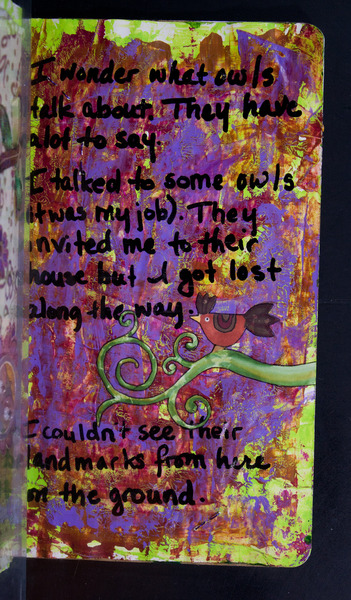 I wonder what owls
talk about. They have
alot to say.
I talked to some owls
(it was my job). They
invited me to their
house but I got lost
along the way.
I couldn't see their
landmarks from here
on the ground.